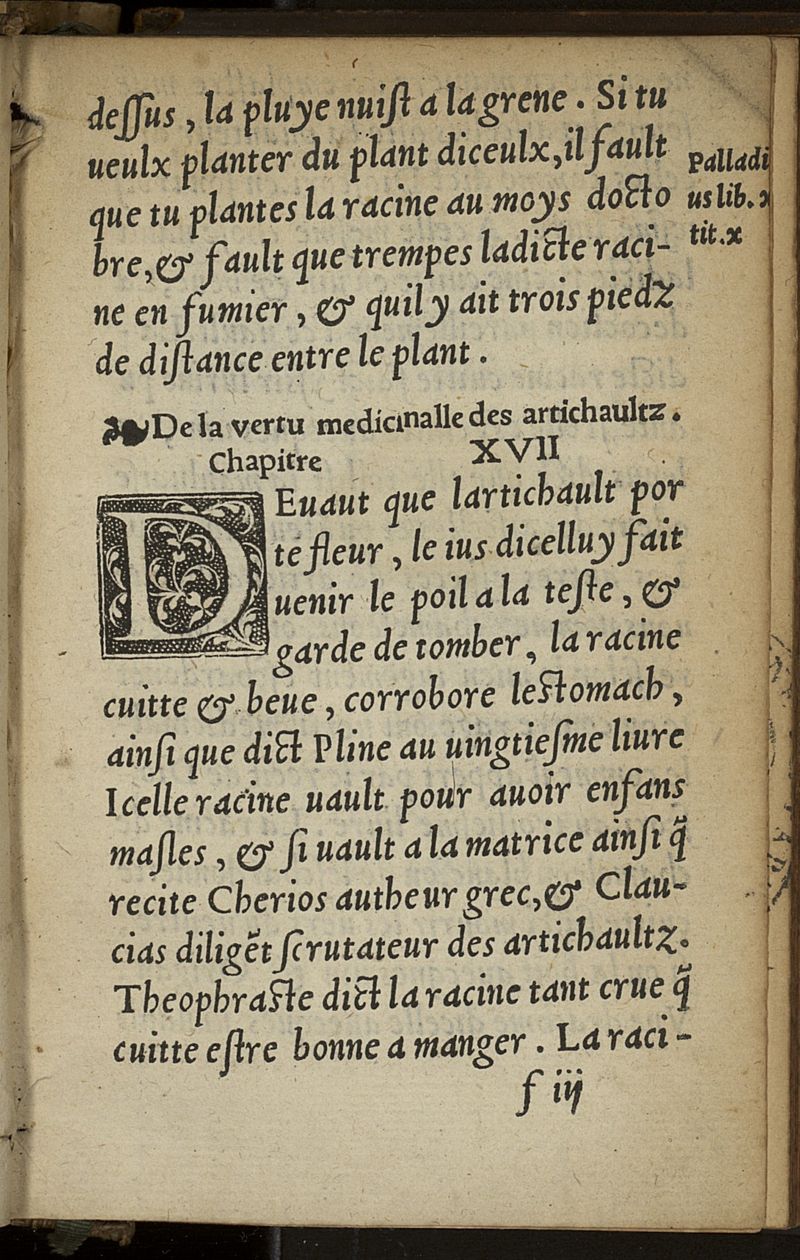 deſſus, la pluye nuiſt a la grene. Si tu
ueulx planter du plant diceulx, il fault
que tu plantes la racine au moys docto
bre, & fault que trempes ladicte raci-
ne en fumier, & quil y ait trois piedz
de diſtance entre le plant.
Palladi
us lib.
tit.x
De la vertu medicinalle des artichaultz.
Chapitre XVII
DEuaut que lartichault por
te fleur, le ius dicelluy fait
uenir le poil a la teſte, &
garde de tomber, la racine
cuitte & beue, corrobore leſtomach,
ainſi que dict Pline au uingtieſme liure
Icelle racine uault pour auoir enfans
maſles, & ſi uault a la matrice ainſi q̃
recite Cherios autheur grec, & Clau-
cias diligẽt ſcrutateur des artichaultz.
Theophraſte dict la racine tant crue q̃
cuitte eſtre bonne a manger. La raci-
f iij